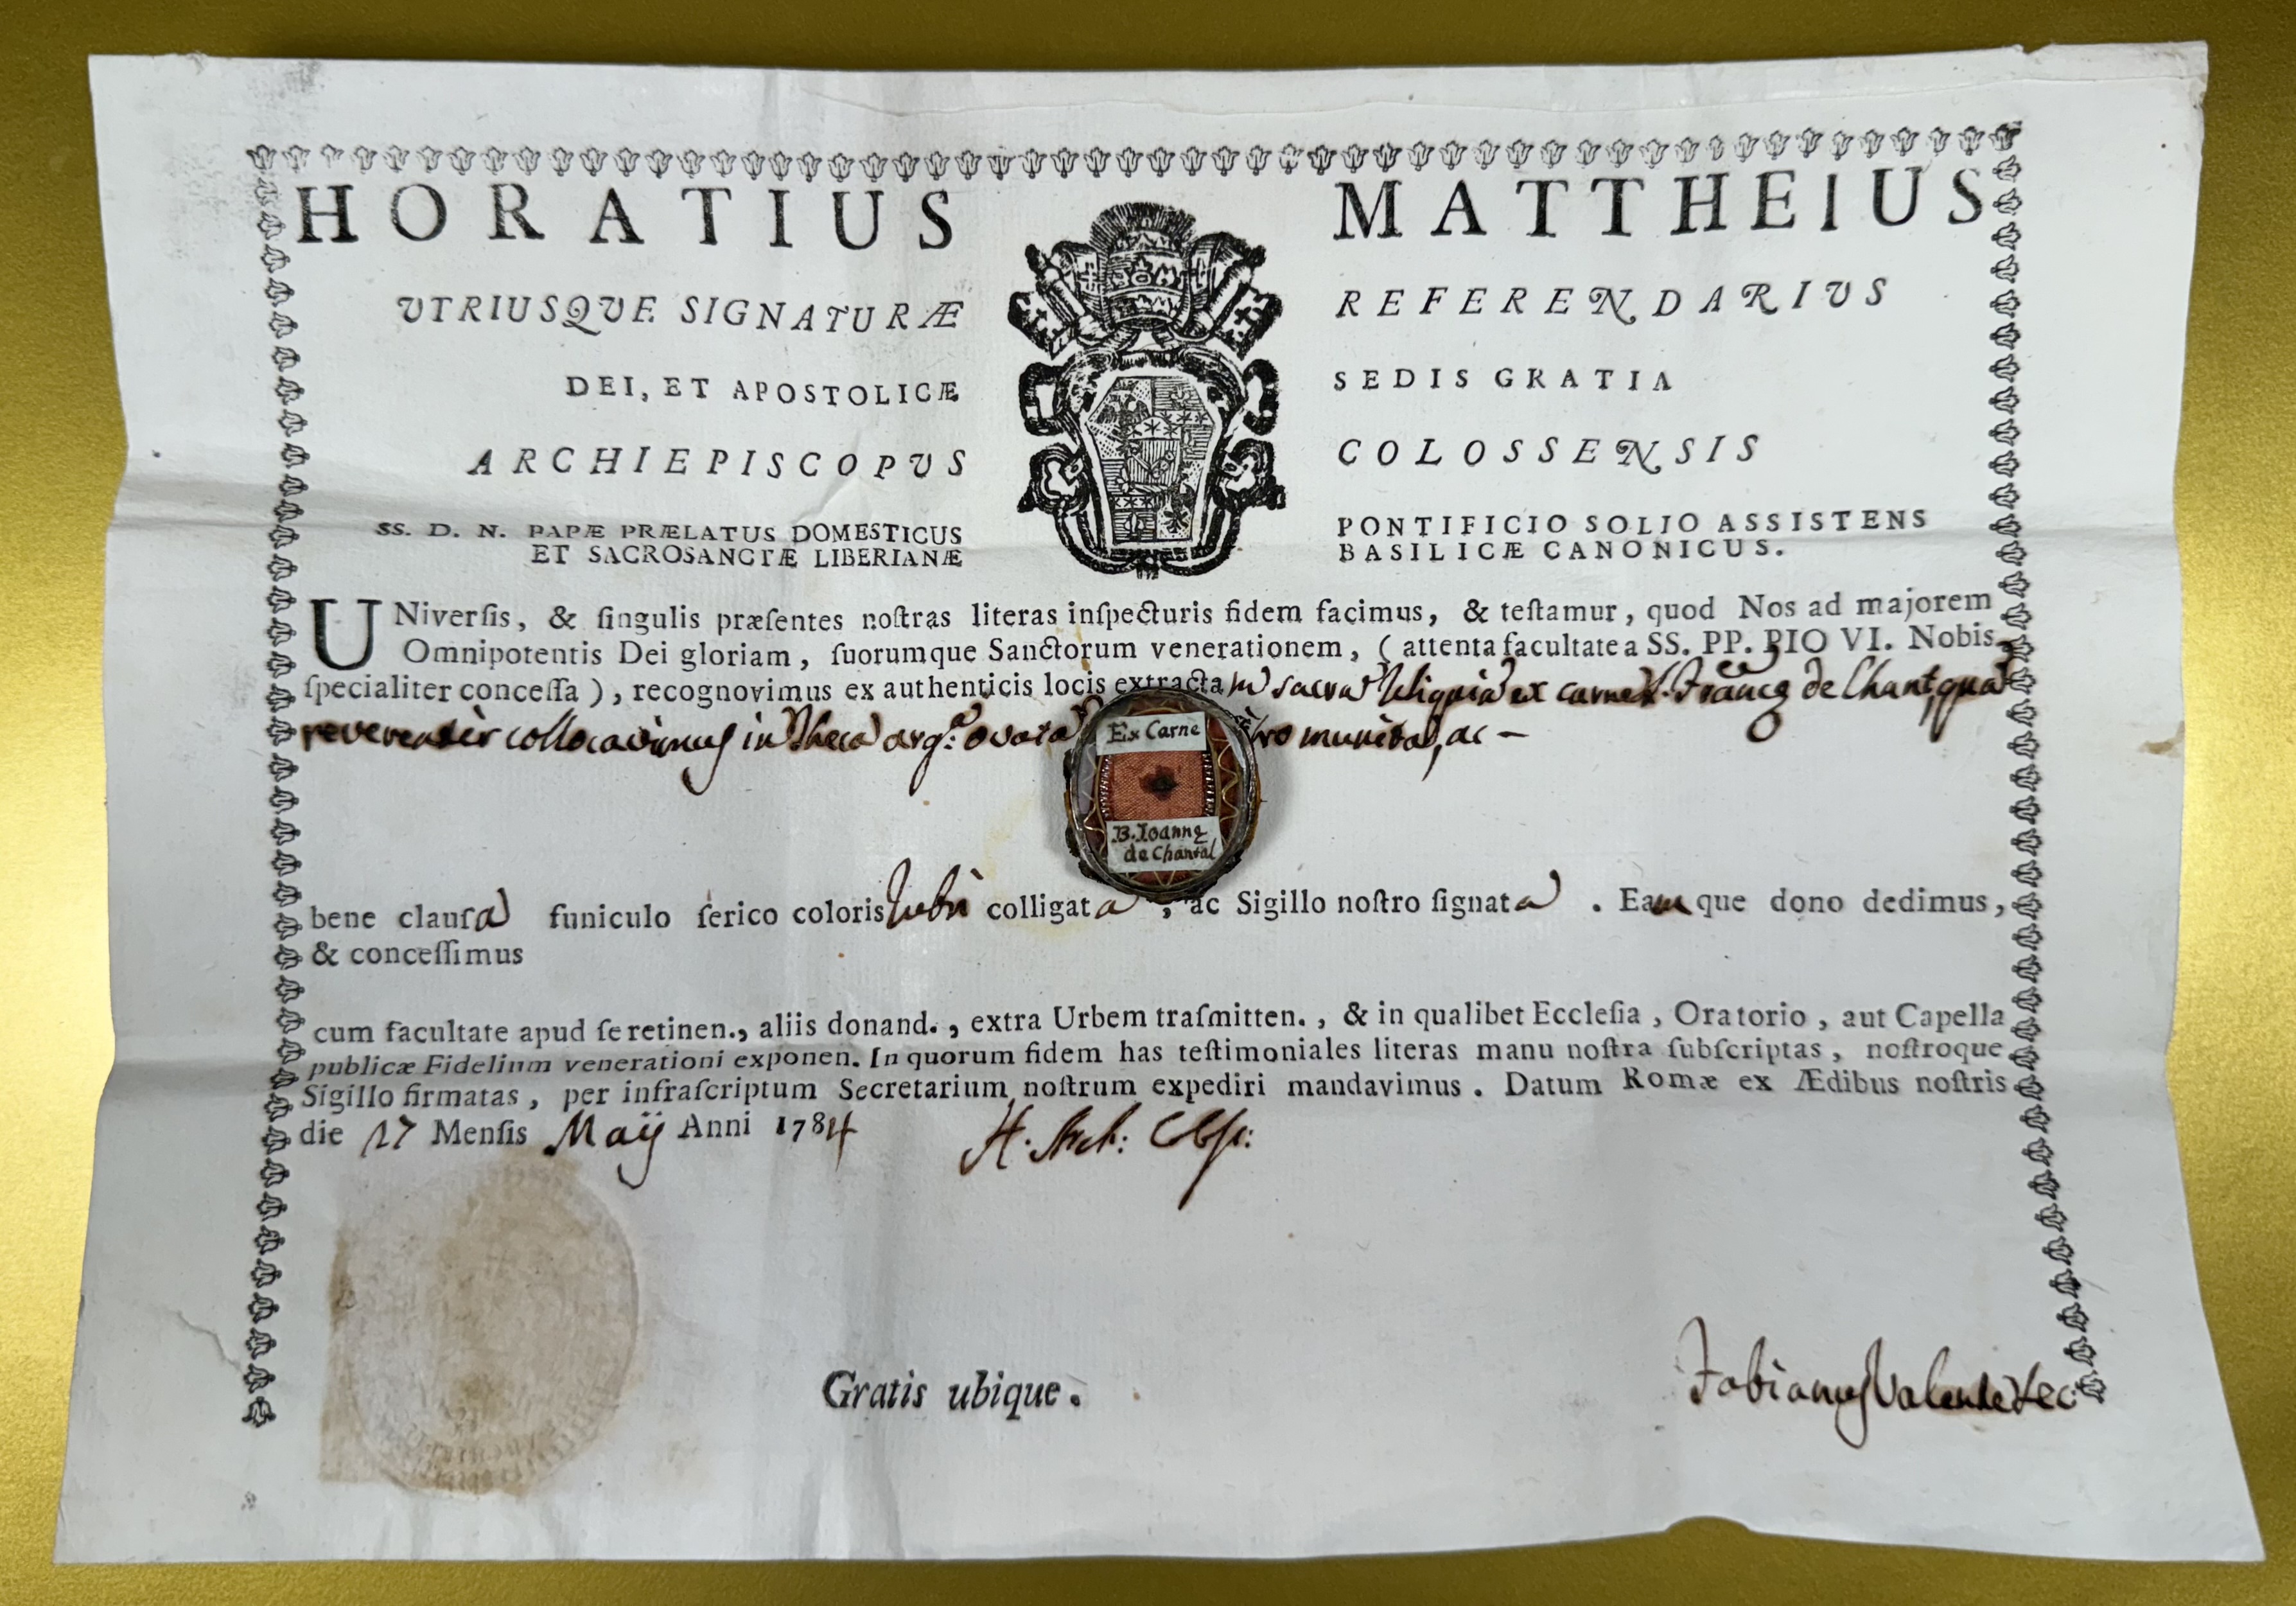 HORATIUS MATTHEIUS
UTRIUSQUE SIGNATURÆ REFERENDARIUS
DEI, ET APOSTOLICÆ SEDIS GRATIA
ARCHIEPISCOPUS COLOSSENSIS
SS. D. N. PAPÆ PRÆLATUS DOMESTICUS PONTIFICIO SOLIO ASSISTENS
ET SACROSANCTÆ LIBERIANÆ BASILICÆ CANONICUS.
UNiverſis, & ſingulis præſentes noſtras literas inſpecturis fidem facimus, & teſtamur, quod Nos ad majorem
Omnipotentis Dei gloriam, ſuorumque Sanctorum venerationem, (attenta facultate a SS. PP. PIO VI. Nobis
ſpecialiter conceſſa), recognovimus ex authenticis locis extractam sacram Reliquia ex carne Francæ de Chant, qua
reverenter collocavimus in Theca arg.a ovata munita, ac —
Ex Carne
B. Ioannę
de Chantal
bene clauſa funiculo ſerico coloris rubri colligata, ac Sigillo noſtro ſignata. Eamque dono dedimus,
& conceſſimus
cum facultate apud ſe retinen., aliis donand., extra Urbem traſmitten., & in qualibet Eccleſia, Oratorio, aut Capella
publicæ Fidelium venerationi exponen. In quorum fidem has teſtimoniales literas manu noſtra ſubſcriptas, noſtroque
Sigillo firmatas, per infraſcriptum Secretarium noſtrum expediri mandavimus. Datum Romæ ex Ædibus noſtris
die 17 Menſis Maij Anni 1784 H. Arch:
Gratis ubique.
Fabianus Valente Sec: